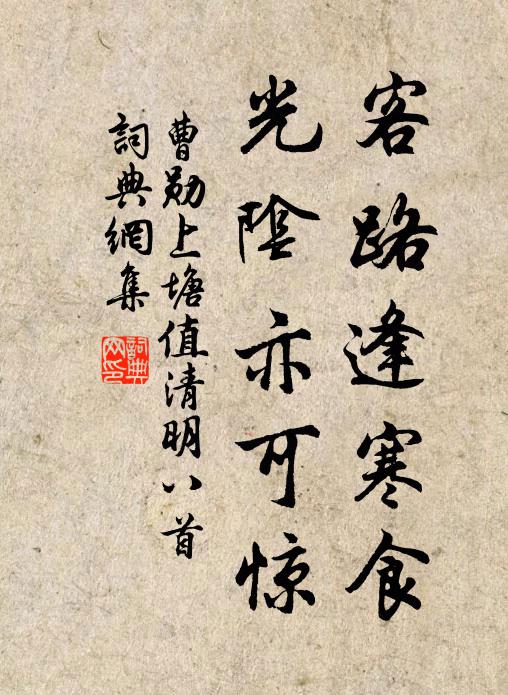 客路逢寒食
光陰亦可惊
曹勋上塘值清明八首
詞典網集
詞典网印